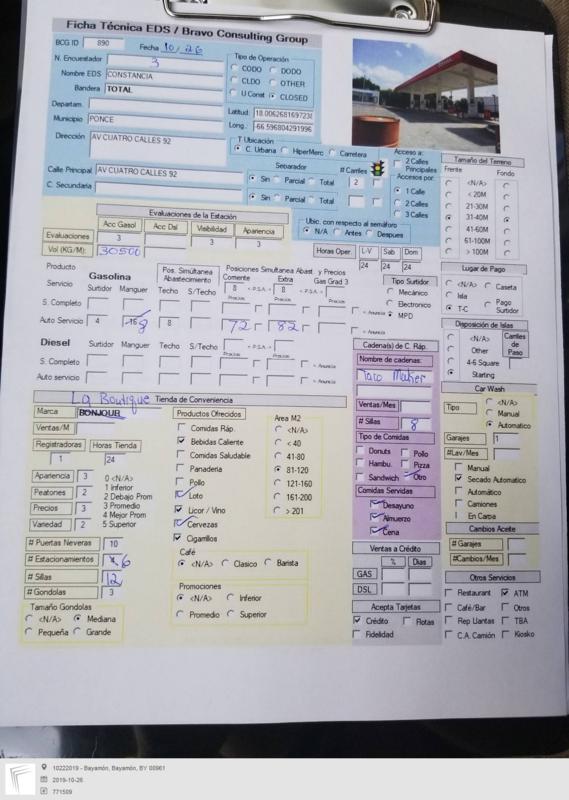 Ficha Técnica EDS / Bravo Consulting Group
BCG ID 890 Fecha 10/26
N. Encuestador 3
Nombre EDS CONSTANCIA
Bandera TOTAL
Departam.
Municipio PONCE
Dirección AV CUATRO CALLES 92
Calle Principal AV CUATRO CALLES 92
C. Secundaria
Tipo de Operación
CODO DODO
CLDO OTHER
U Const CLOSED
Latitud: 18.0062681697238
Long.: -66.596804291996
T Ubicación
C. Urbana HiperMerc Carretera
Separador # Carriles
Sin Parcial Total 2
Sin Parcial Total
Acceso a:
2 Calles Principales
Accesos por:
1 Calle
2 Calles
3 Calles
Tamaño del Terreno
Frente Fondo
<N/A>
< 20M
21-30M
31-40M
41-60M
61-100M
> 100M
Evaluaciones de la Estación
Acc Gasol Acc Dsl Visibilidad Apariencia
Evaluaciones 3 3 3
Vol (KG/M): 30500
Ubic. con respecto al semáforo
N/A Antes Despues
Horas Oper. L-V Sab Dom
24 24 24
Lugar de Pago
<N/A> Caseta
Isla Pago Surtidor
T-C
Producto
Servicio Gasolina
Surtidor Manguer
Pos. Simultánea Abastecimiento
Techo S/Techo
Posiciones Simultanea Abast. y Precios
Corriente Extra Gas Grad 3
8 < P.S.A. > 8 < P.S.A. >
Precios Precios Precios
S. Completo = Anuncia
Auto Servicio 4 16 8 8 72 82 = Anuncia
Tipo Surtidor
Mecánico
Electronico
MPD
Disposición de Islas
<N/A>
Other
4-6 Square
Starting
Carriles de Paso
Diesel Surtidor Manguer Techo S/Techo
< P.S.A. >
Precios Precios
S. Completo = Anuncia
Auto servicio = Anuncia
Cadena(s) de C. Ráp.
Nombre de cadenas:
Taco Maker
Ventas/Mes
# Sillas 8
Tipo de Comidas
Donuts Pollo
Hambu. Pizza
Sandwich Otro
Comidas Servidas
Desayuno
Almuerzo
Cena
Car Wash
Tipo <N/A>
Manual
Automatico
Garajes 1
#Lav/Mes
Manual
Secado Automatico
Automático
Camiones
En Carpa
Cambios Aceite
# Garajes
#Cambios/Mes
La Boutique Tienda de Conveniencia
Marca BONJOUR
Ventas/M
Registradoras Horas Tienda
1 24
Apariencia 3
Peatones 2
Precios 3
Variedad 2
0 <N/A>
1 Inferior
2 Debajo Prom
3 Promedio
4 Mejor Prom
5 Superior
# Puertas Neveras 10
# Estacionamientos 6
# Sillas 12
# Gondolas 3
Tamaño Gondolas
<N/A> Mediana
Pequeña Grande
Productos Ofrecidos
Comidas Ráp.
Bebidas Caliente
Comidas Saludable
Panaderia
Pollo
Loto
Licor / Vino
Cervezas
Cigarrillos
Area M2
<N/A>
< 40
41-80
81-120
121-160
161-200
> 201
Café
<N/A> Clasico Barista
Promociones
<N/A> Inferior
Promedio Superior
Ventas a Crédito
% Dias
GAS
DSL
Acepta Tarjetas
Crédito Flotas
Fidelidad
Otros Servicios
Restaurant ATM
Café/Bar Otros
Rep Llantas TBA
C.A. Camión Kiosko
10222019 - Bayamón, Bayamón, BY 00961
2019-10-26
771509